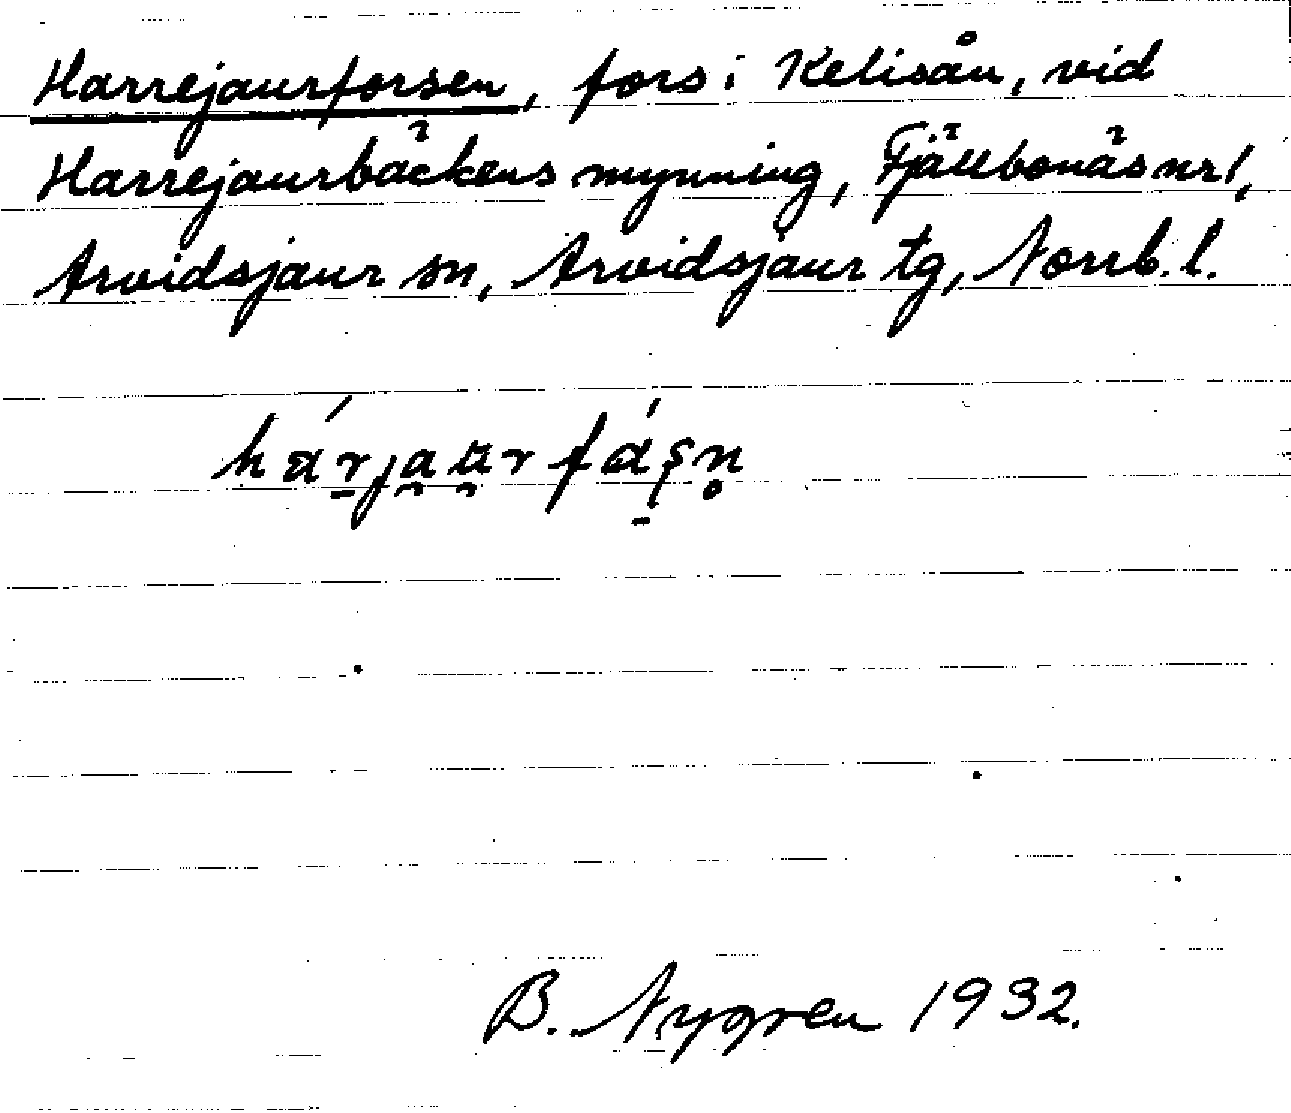 Harrejaurforsen, fors i Kelisån, vid
Harrejaurbäckens mynning, Fjällbonäs nr 1,
Arvidsjaur sn, Arvidsjaur tg, Norrb. l.
B. Nygren 1932.